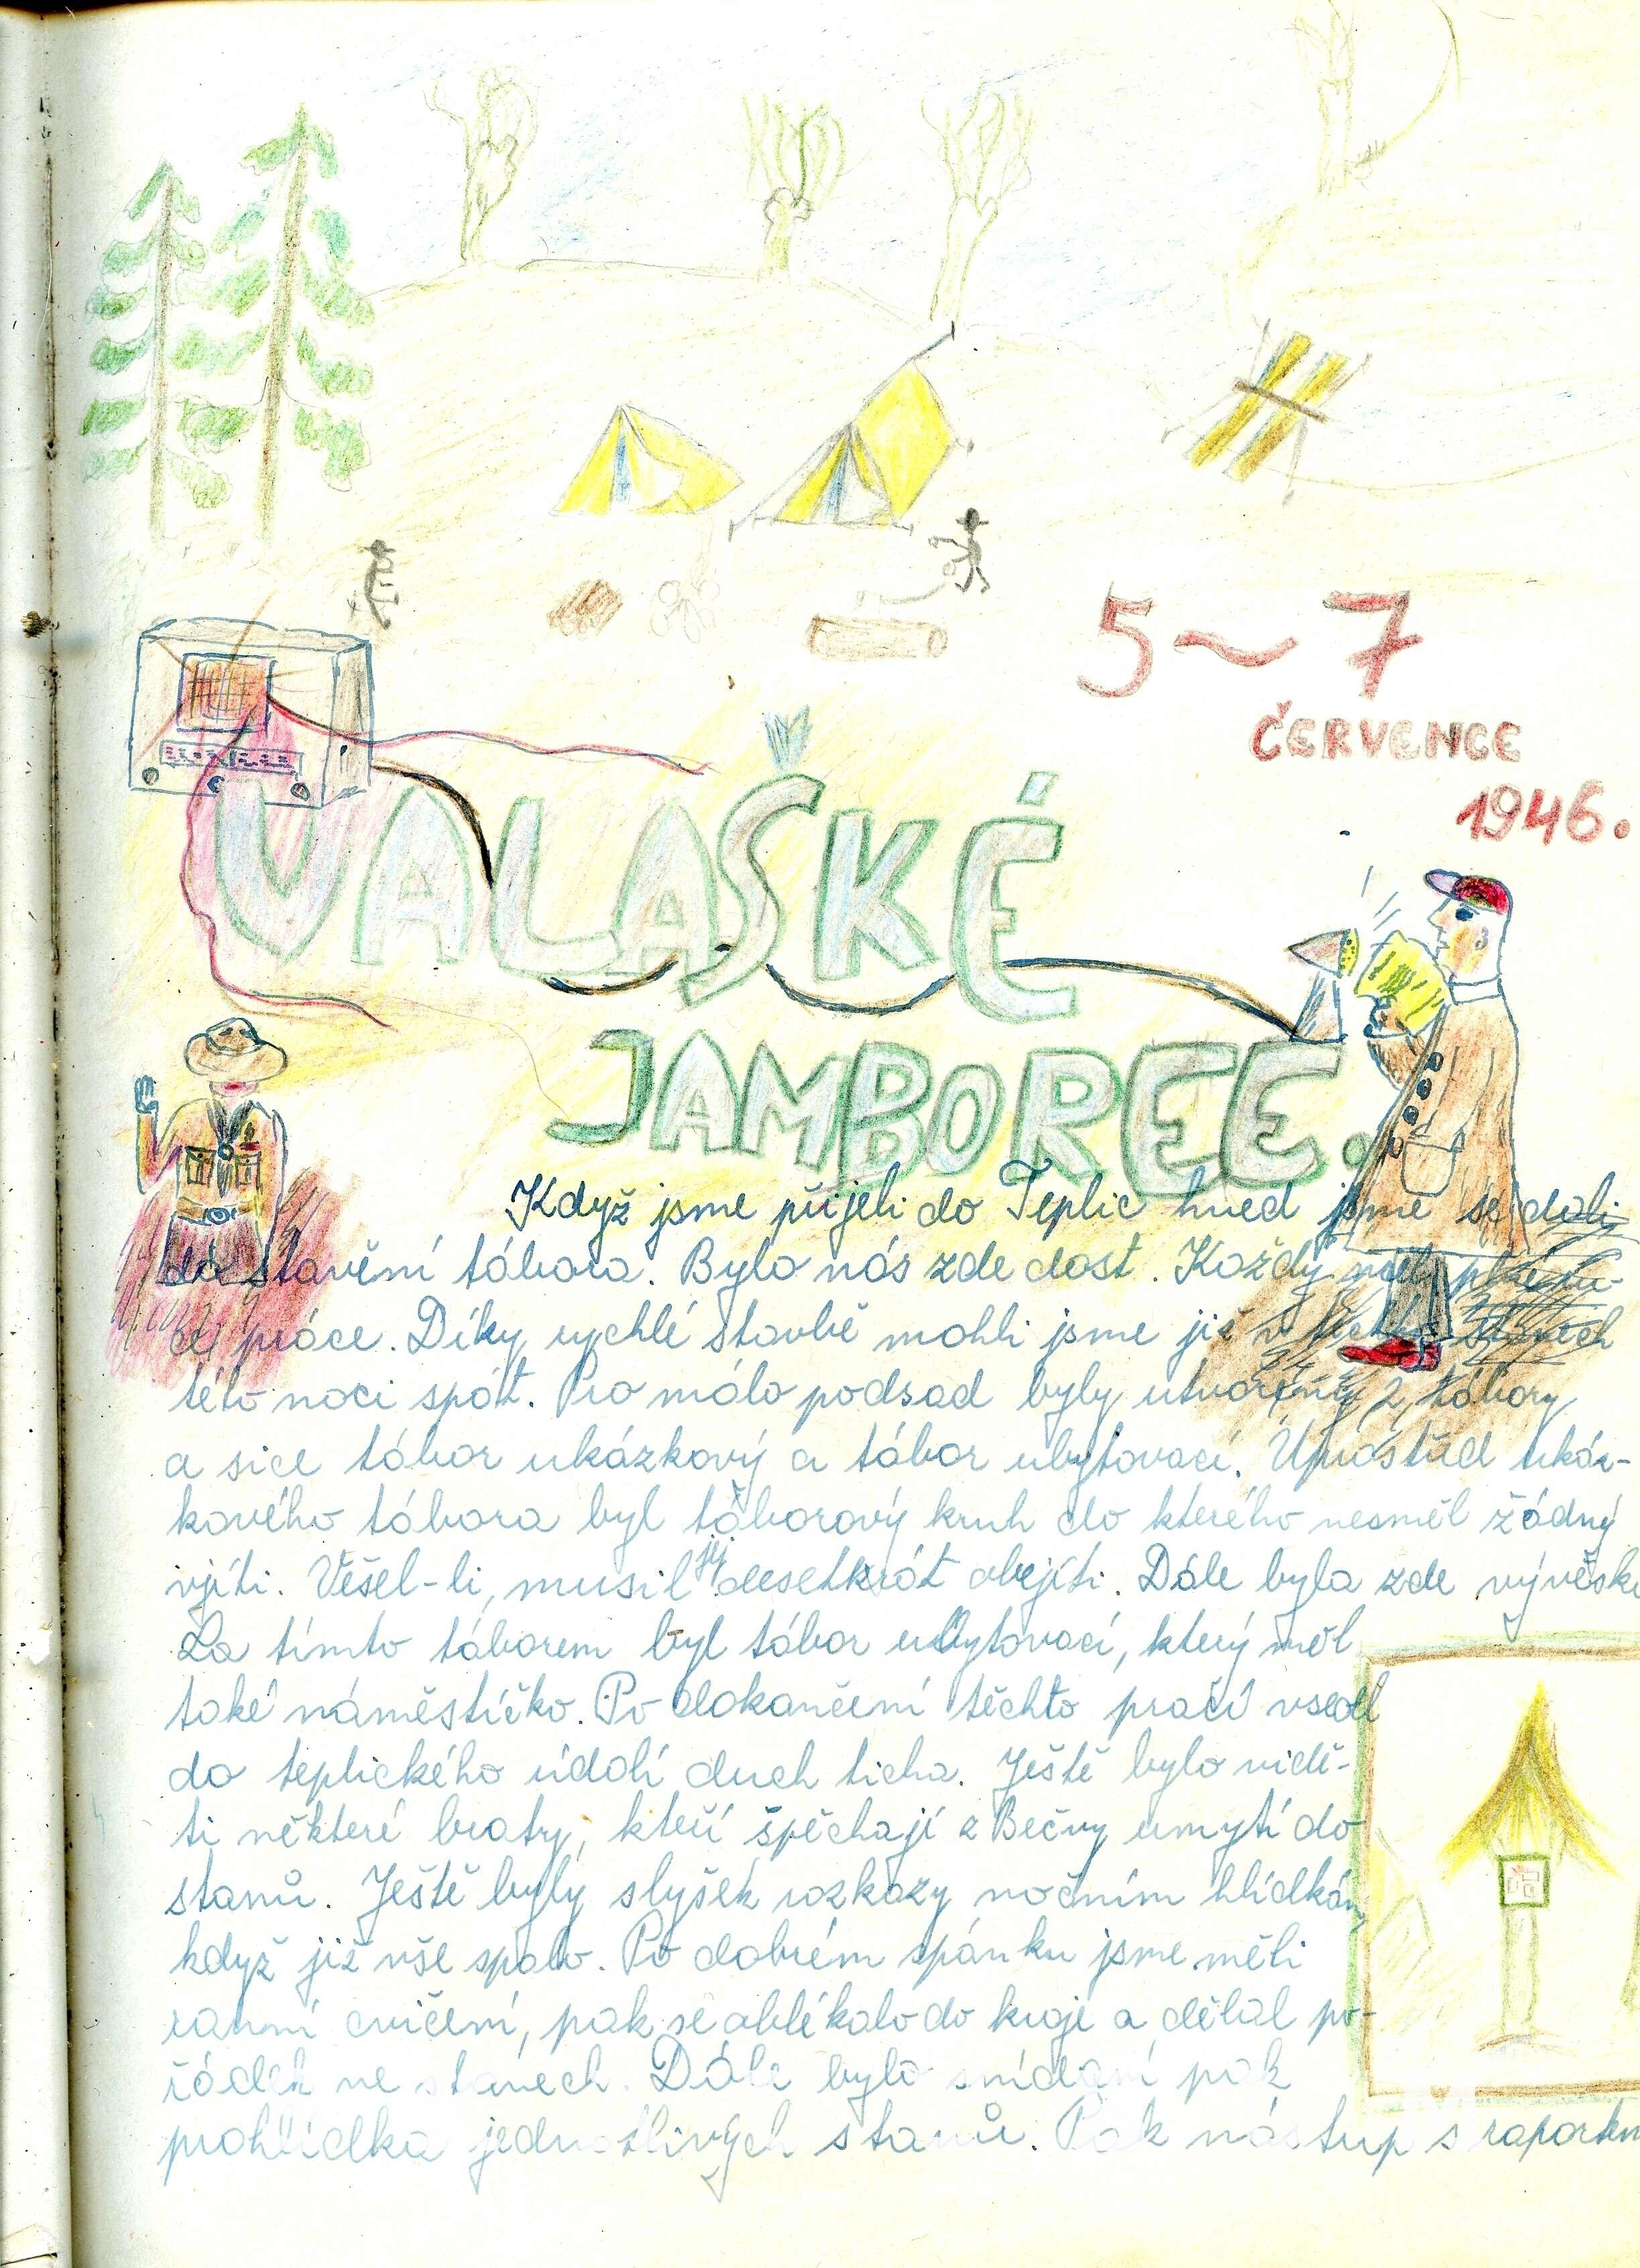 5~7
ČERVENCE
1946.
VALAŠKÉ
JAMBOREE.
Když jsme přijeli do Teplic hned jsme se dali
do stavění tábora. Bylo nás zde dost. Každý měl plné ru-
ce práce. Díky rychlé stavbě mohli jsme již v těchto stanech
této noci spát. Pro málo podsad byly utvořeny 2 tábory
a sice tábor ukázkový a tábor ubytovací. Uprostřed ukáz-
kového tábora byl táborový kruh do kterého nesměl žádný
vjíti. Vešel-li, musil jej desetkrát obejíti. Dále byla zde vývěska
Za tímto táborem byl tábor ubytovací, který měl
také náměstíčko. Po dokončení těchto prací vsedl
do teplického údolí duch ticha. Ještě bylo vidě-
ti některé bratry, kteří špěchají z Bečvy umytí do
stanů. Ještě byly slyšek rozkazy nočním hlídkám,
když již vše spalo. Po dobrém spánku jsme měli
ranní cvičení, pak se oblékalo do kroje a dělal po-
řádek ve stanech. Dále bylo snídaní pak
prohlídka jednotlivých stanů. Pak nástup s raportem